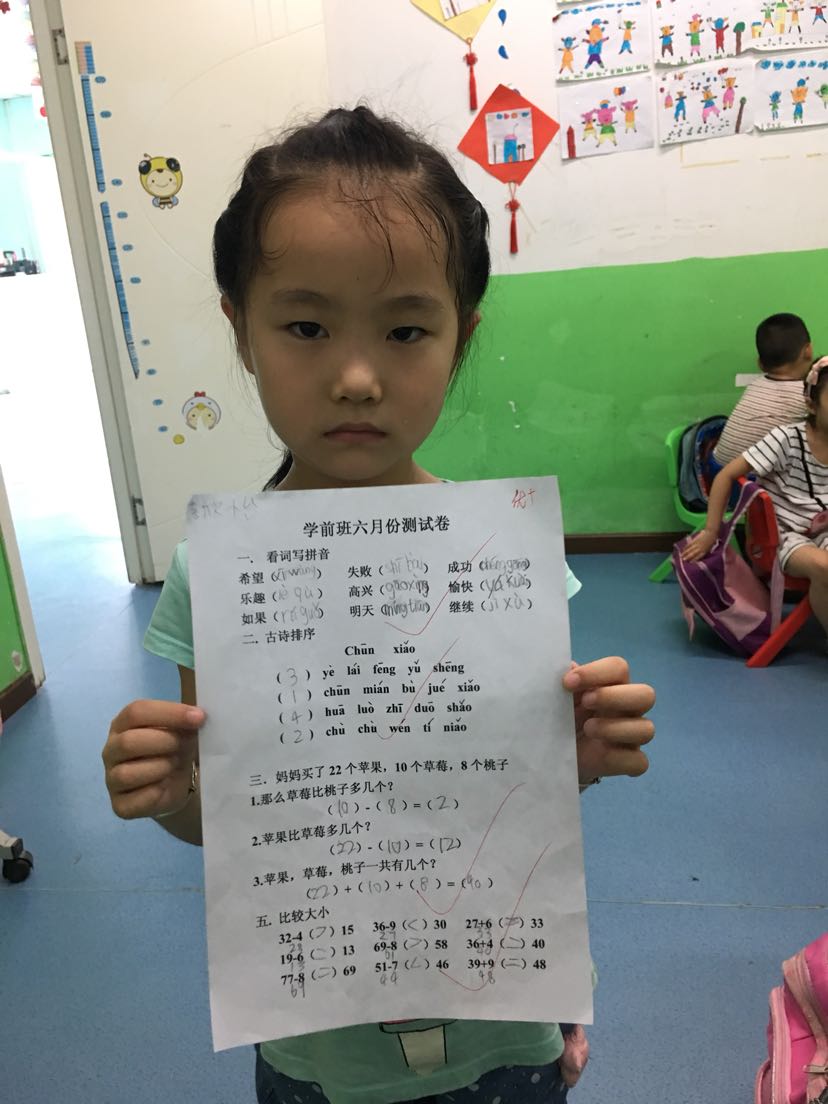 优+
学前班六月份测试卷
一. 看词写拼音
希望（xī wàng） 失败（shī bài） 成功（chéng gōng）
乐趣（lè qù） 高兴（gāo xìng） 愉快（yú kuài）
如果（rú guǒ） 明天（míng tiān） 继续（jì xù）
二. 古诗排序
Chūn xiǎo
（3） yè lái fēng yǔ shēng
（1） chūn mián bù jué xiǎo
（4） huā luò zhī duō shǎo
（2） chù chù wén tí niǎo
三. 妈妈买了 22 个苹果，10 个草莓，8 个桃子
1.那么草莓比桃子多几个？
（10）-（8）=（2）
2.苹果比草莓多几个？
（22）-（10）=（12）
3.苹果，草莓，桃子一共有几个？
（22）+（10）+（8）=（40）
五. 比较大小
32-4（>）15 36-9（<）30 27+6（=）33
28 27 33
19-6（=）13 69-8（>）58 36+4（=）40
13 61 40
77-8（=）69 51-7（<）46 39+9（=）48
69 44 48